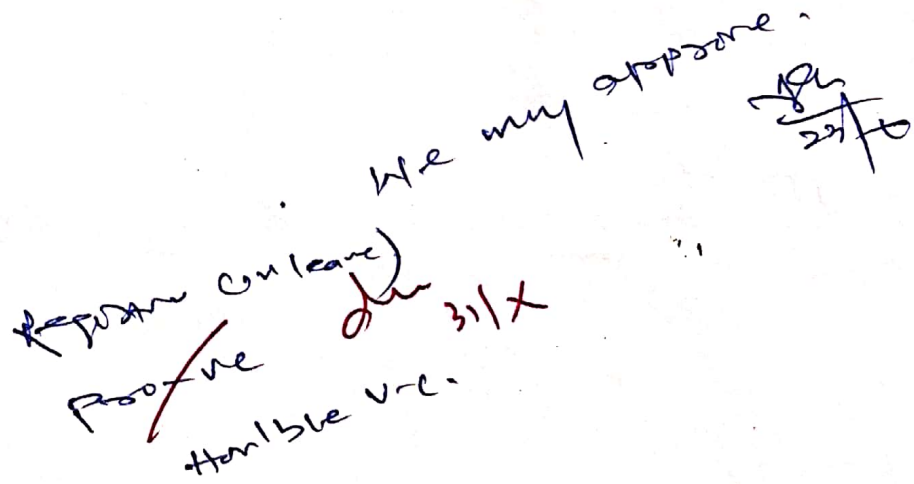 We may approve.
Registrar (on leave)
Pro-vc
Hon'ble V-C.